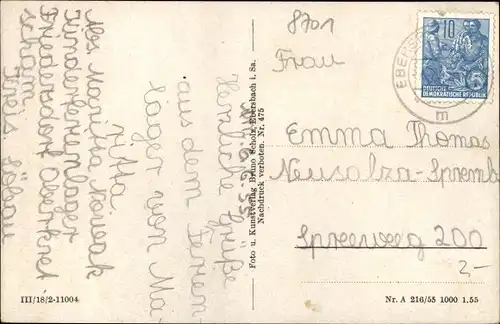 8701
Frau
Emma Thomas
Neusalza-Spremb
Spreeweg 200
2-
Herzliche Grüße
aus dem Ferien-
lager von Ma-
Kinderferienlager
Friedersdorf Oberkret
scham
Kreis Löbau
Foto u. Kunstverlag Bruno Scholz, Ebersbach i. Sa.
Nachdruck verboten. Nr. 475
10
DEUTSCHE
DEMOKRATISCHE REPUBLIK
III/18/2-11004
Nr. A 216/55 1000 1.55